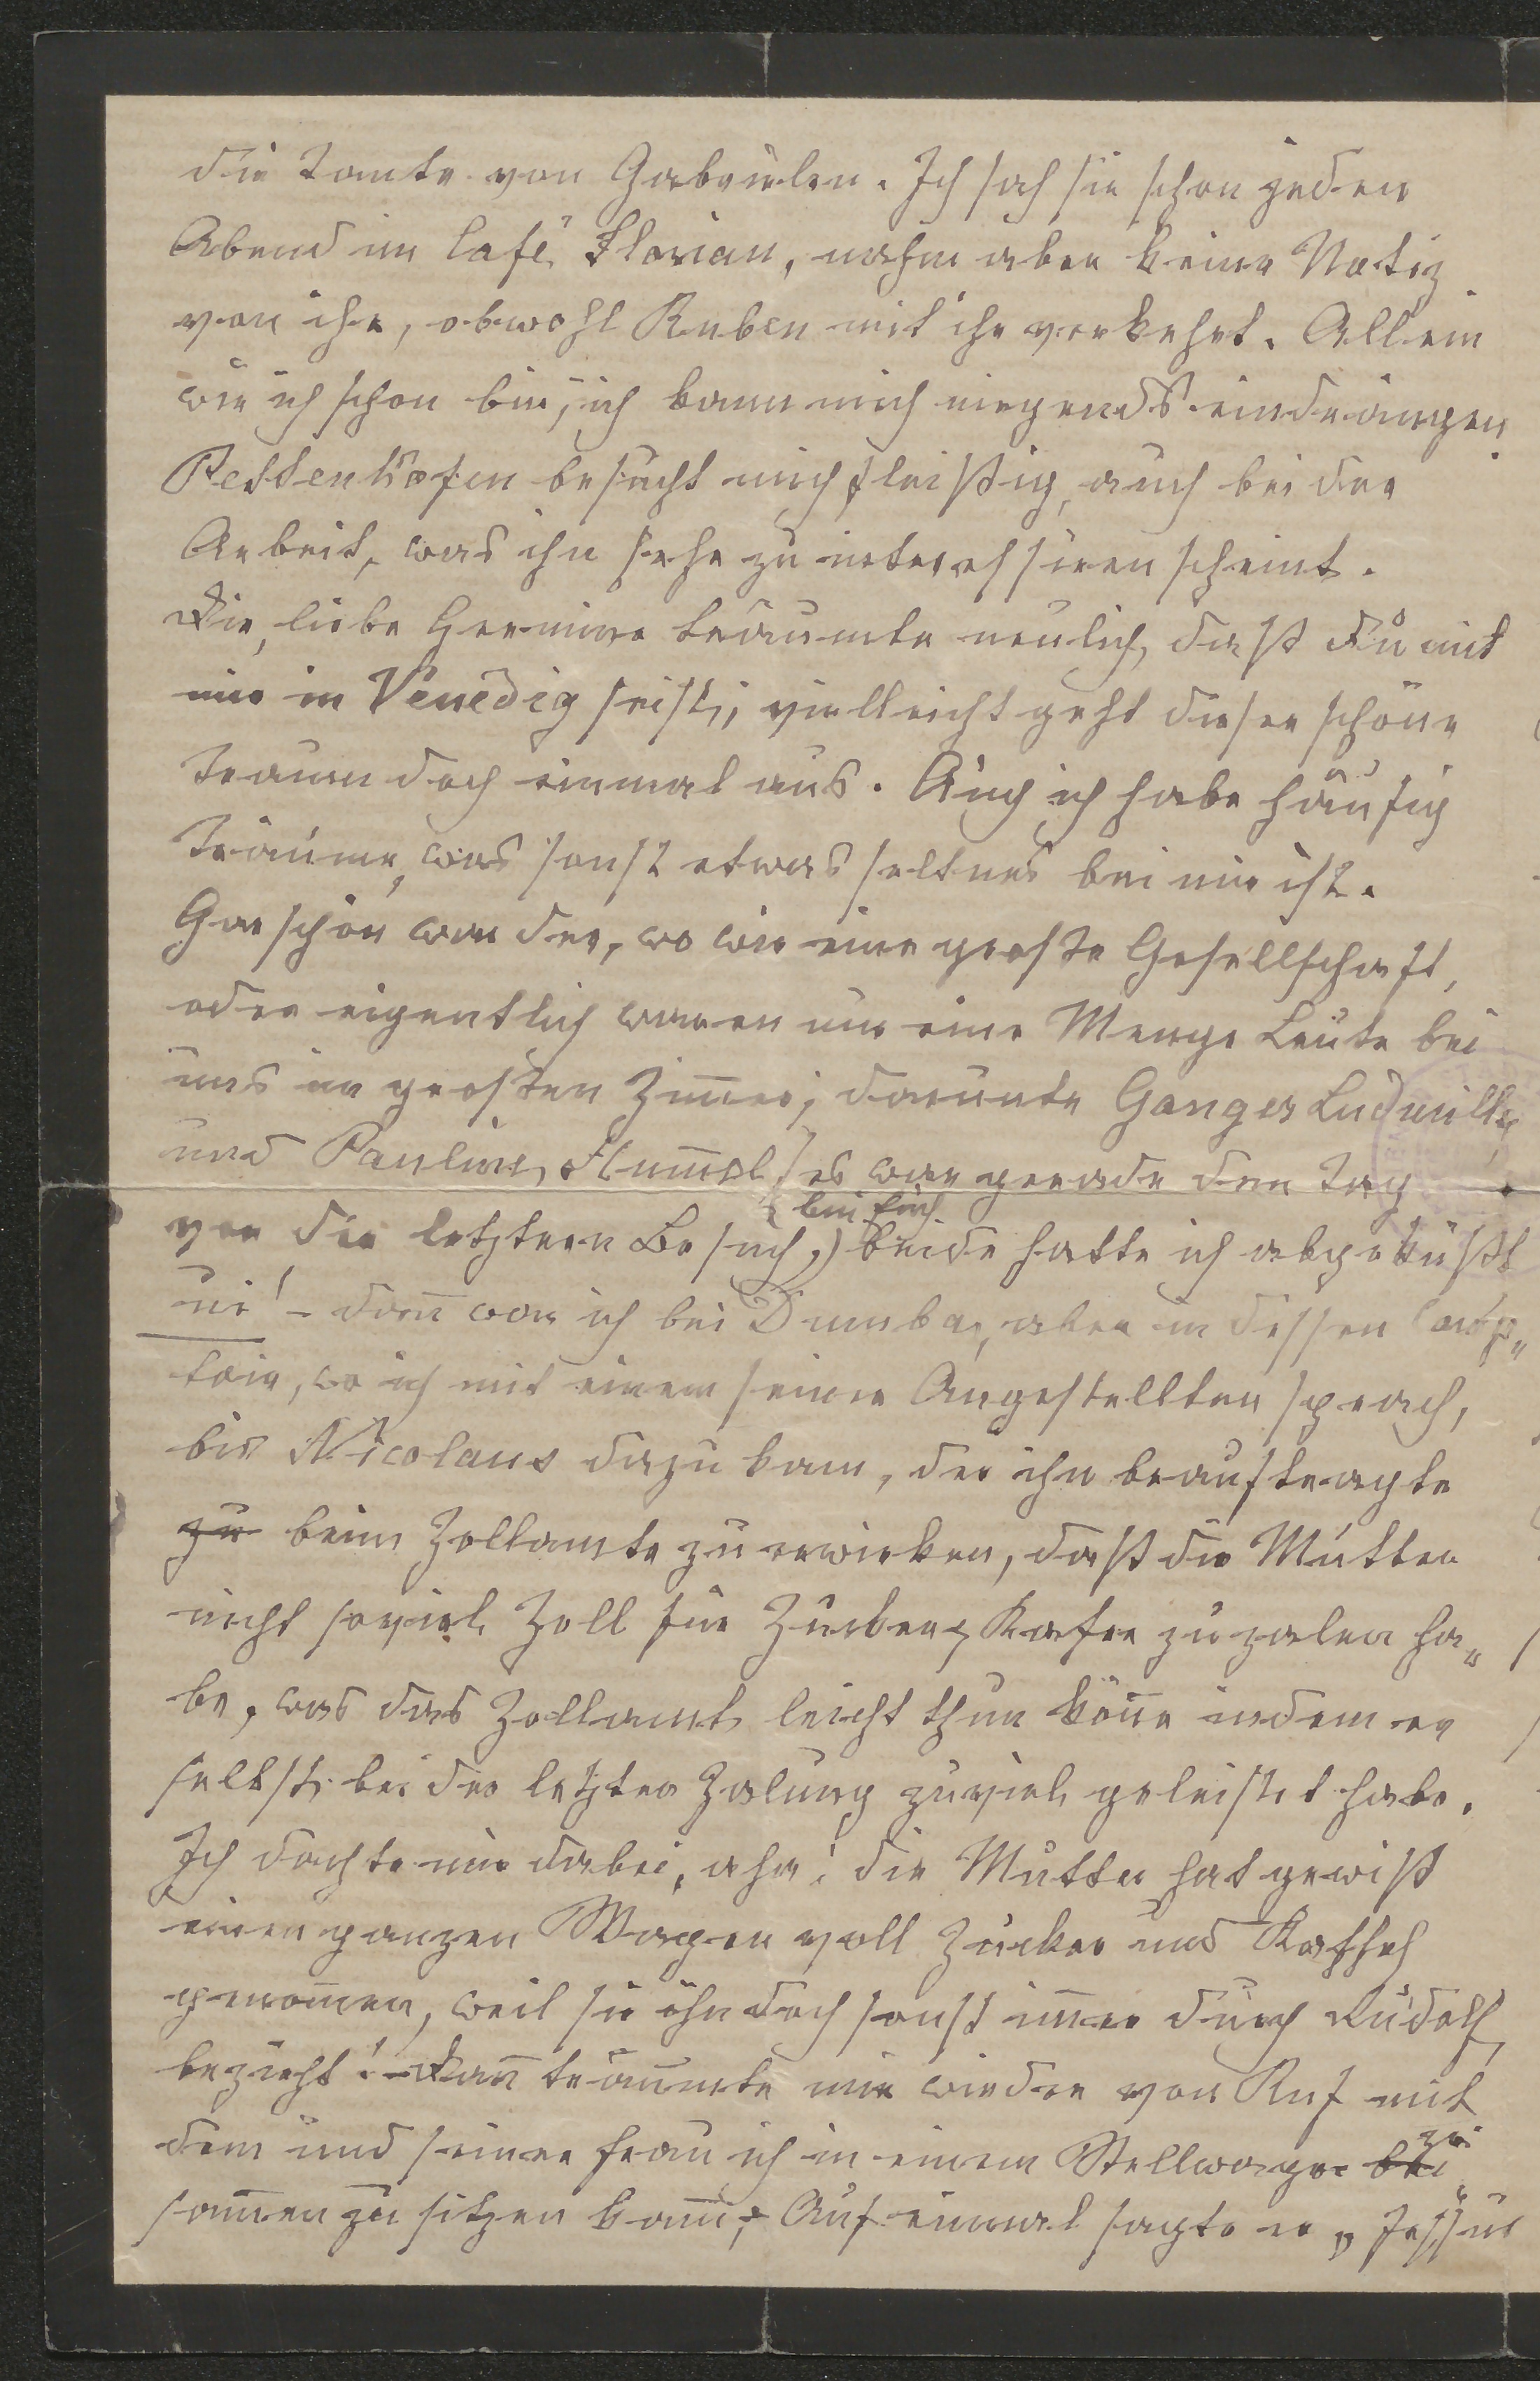 die Tante von Gabrielen. Ich sah sie schon jeden
Abend im Café Florian, nahm aber keine Notiz
von ihr, obwohl Ruben mit ihr verkehrt. Allein
wie ich schon bin, ich kann mich nirgends eindrängen
Pettenkofen besucht mich fleißig, auch bei der
Arbeit, was ihn sehr zu interessiren scheint.
Die liebe Hermine träumte neulich, daß Du mit
mir in Venedig seist; vielleicht geht dieser schöne
Traum doch einmal aus. Auch ich habe häufig
Träume, was sonst etwas seltnes bei mir ist.
Gar schön war der, wo wir eine große Gesellschaft,
oder eigentlich waren nur eine Menge Leute bei
uns im großen Zim̄er; darunter Ganges Ludmilla
und Pauline Hum̄el, (es war gerade den Tag
vor die letztern Besuch,) beide hatte ich abgeküßt
bei Euch
nie! – dan̄ war ich bei Dumba, aber in dessen Comp„
toir, wo ich mit einem seiner Angestellten sprach,
bis Nicolaus dazu kam, der ihn beauftragte
zu beim Zollamte zu erwirken, daß die Mutter
nicht soviel Zoll für Zucker & Kafee zu zalen ha„
be, was das Zollamt leicht thun kön̄e indem er
selbst bei der letzten Zalung zuviel geleistet habe.
Ich dachte mir dabei, aha! die Mutter hat gewiß
einen ganzen Wagen voll Zucker und Kaffeh
genom̄en, weil sie ihn doch sonst im̄er durch Rudolf
bezieht! – Dan̄ träumte mir wieder von Ruf mit
dem und seiner Frau ich in einem Stellwagen bei
zu
sam̄en zu sitzen kam; Auf einmal sagte er „Jessus